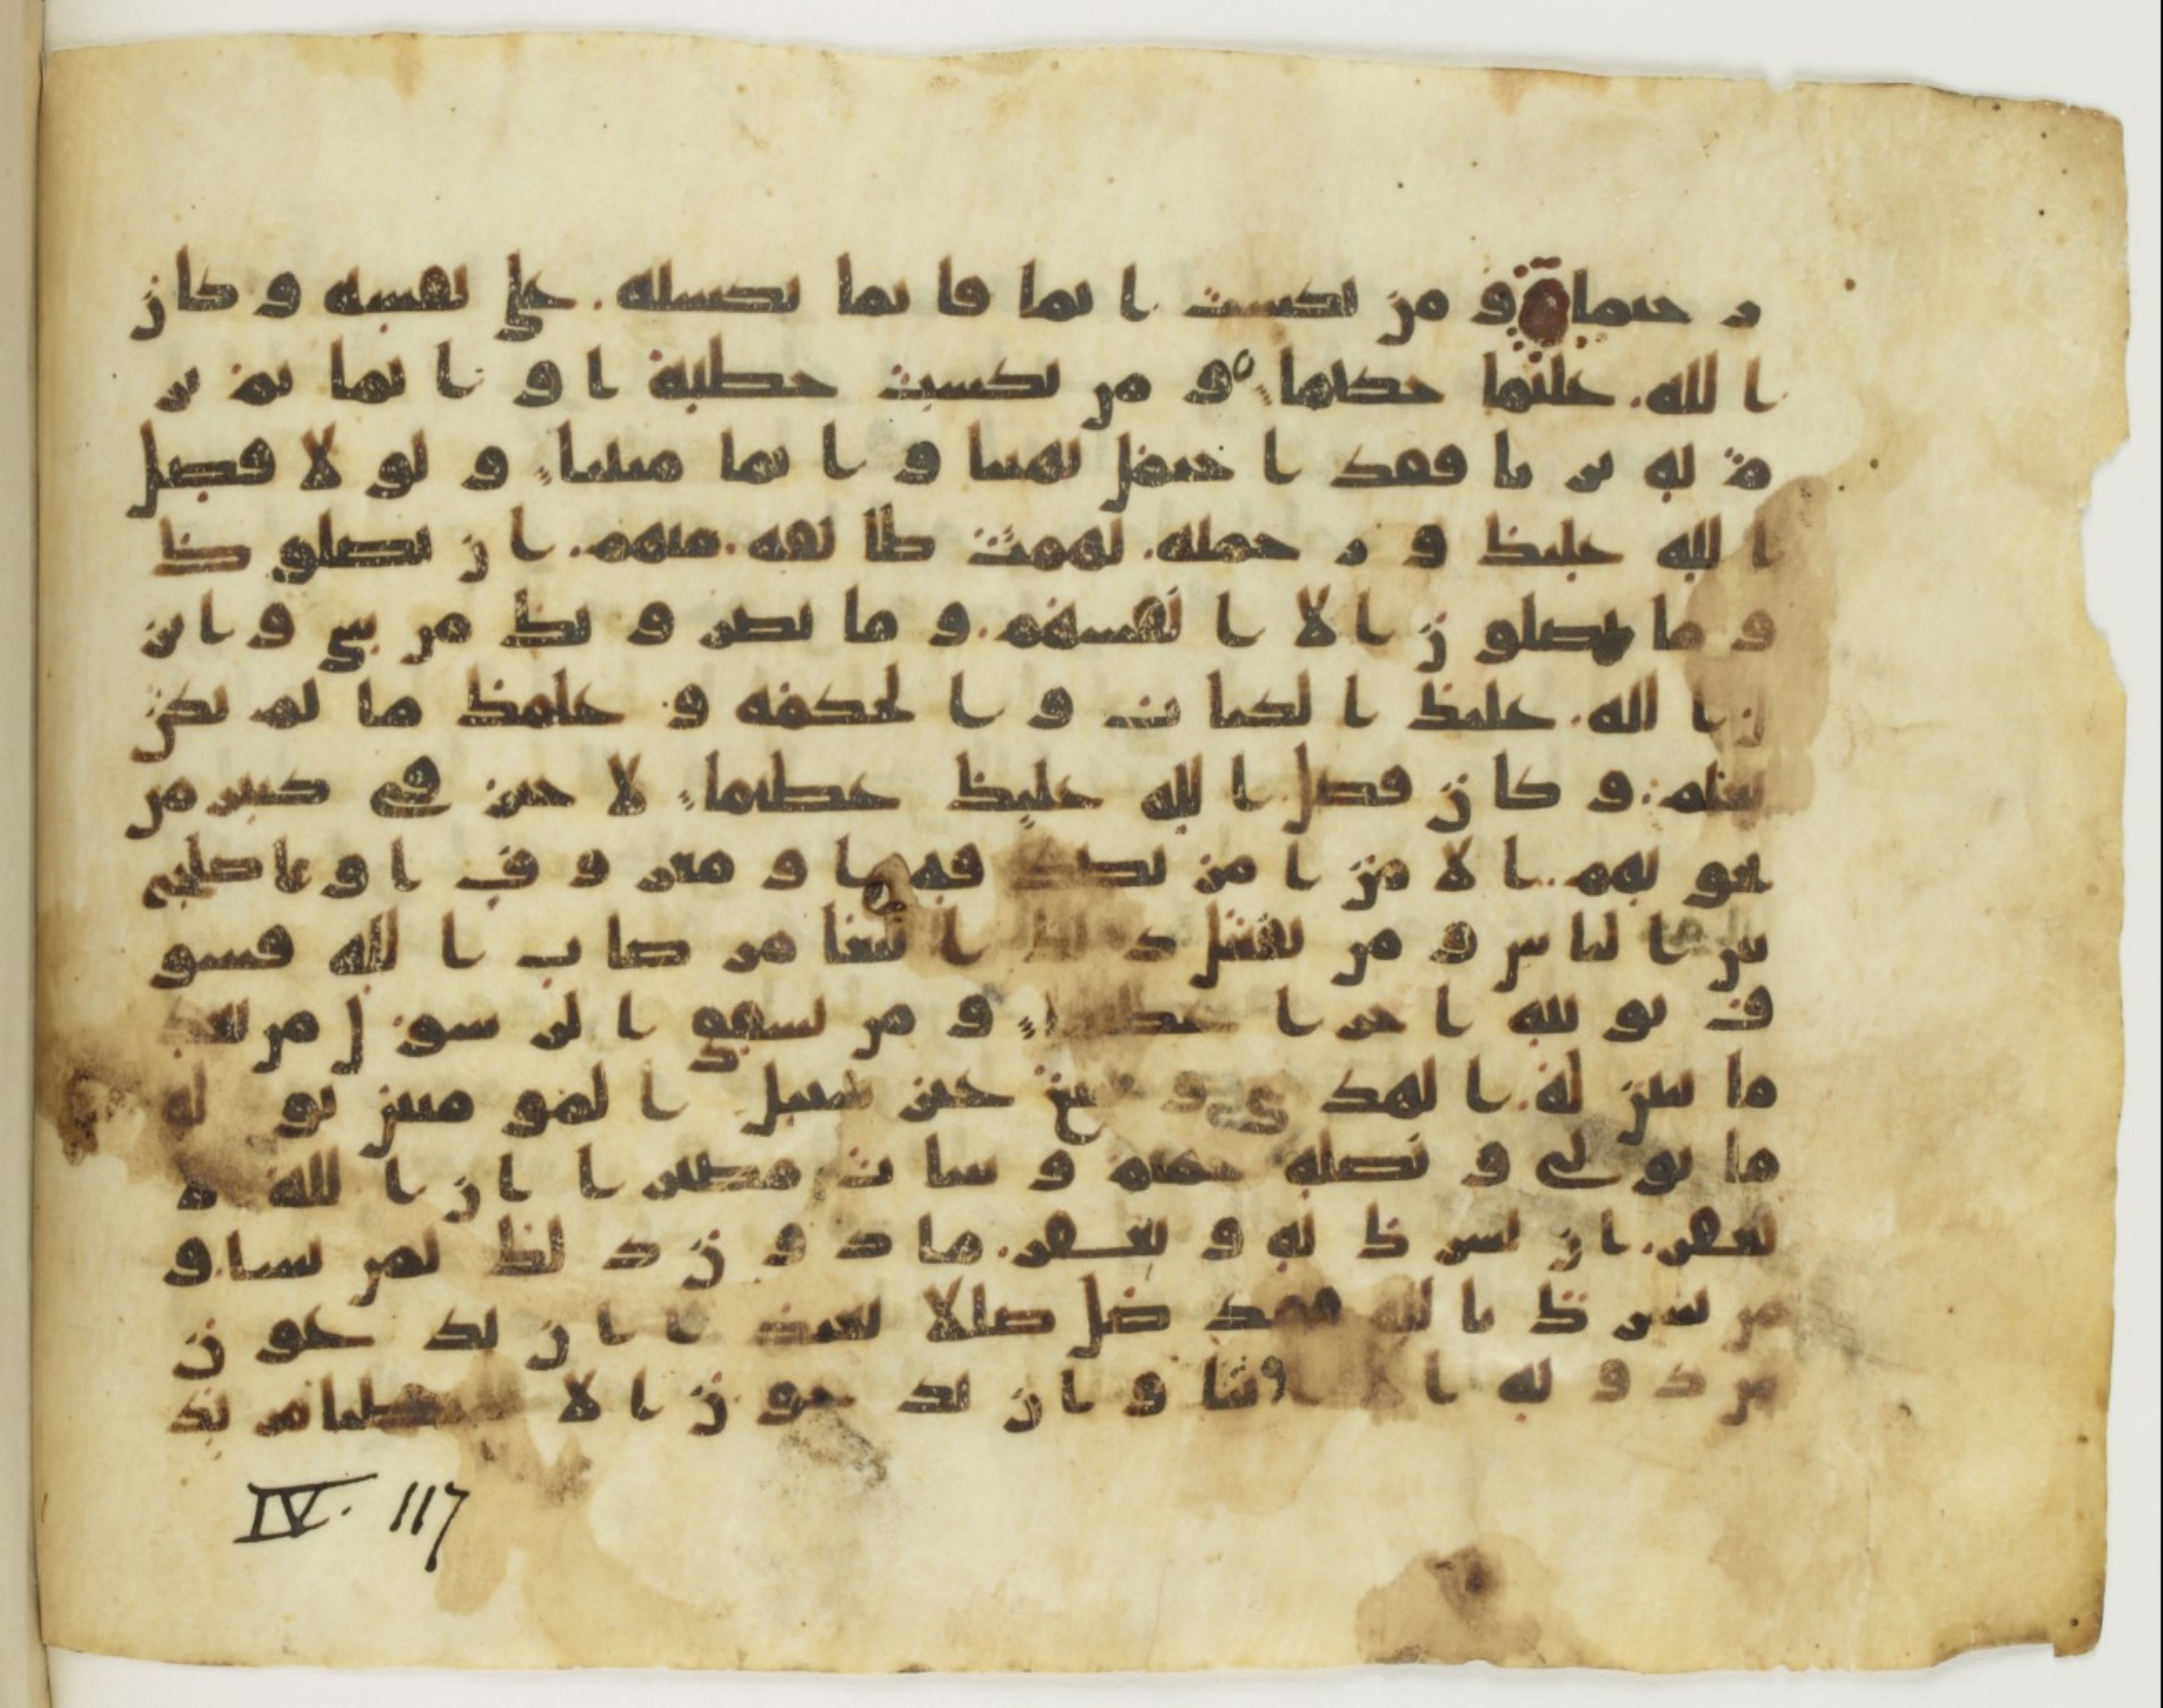 رحيما و من يكسب اثما فانما يكسبه على نفسه و كان
الله عليما حكيما و من يكسب خطية او اثما ثم ير
م به بريا فقد احتمل بهتنا و اثما مبينا و لو لا فضل
الله عليك و رحمته لهمت طائفه منهم ان يضلوك
و ما يضلون الا انفسهم و ما يضرونك من شي و انز
ل الله عليك الكتاب و الحكمه و علمك ما لم تكن
تعلم و كان فضل الله عليك عظيما لا خير في كثير من
نجويهم الا من امر بصدقه او معروف او اصلح
بين الناس و من يفعل ذلك ابتغا مرضات الله فسو
ف نوتيه اجرا عظيما و من يشقق الرسول من بعد
ما تبين له الهدى و يتبع غير سبيل المومنين نوله
ما تولى و نصله جهنم و سات مصيرا ان الله لا
يغفر ان يشرك به و يغفر ما دون ذلك لمن يشا و
من يشرك بالله فقد ضل ضللا بعيدا ان يدعون
من دونه الا انثا و ان يدعون الا شيطنا مريد
IV. 117